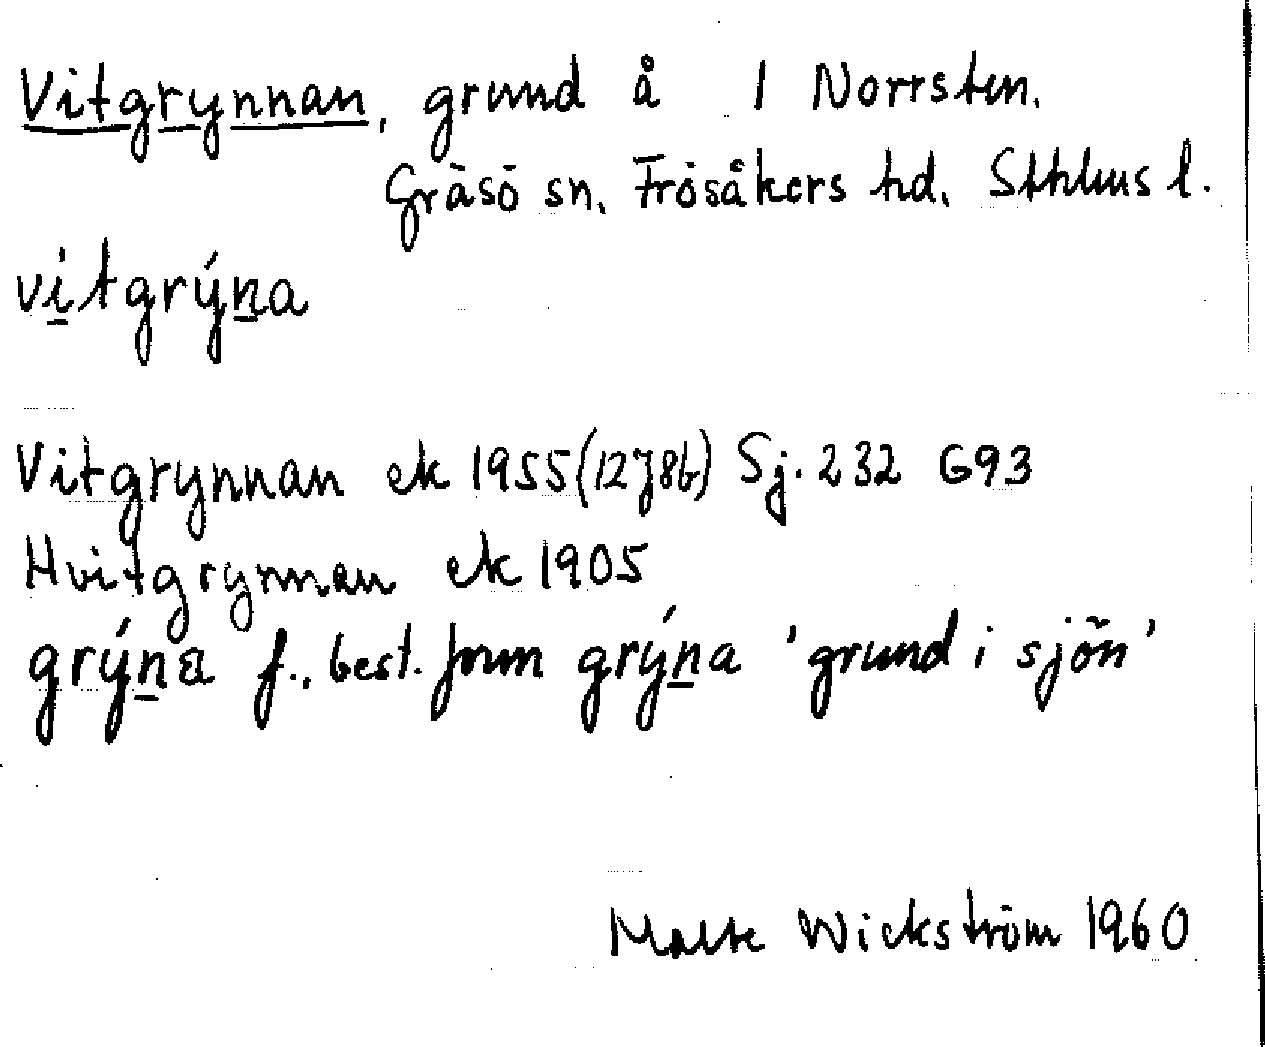 Vitgrynnan, grund å 1 Norrsten.
Gräsö sn. Frösåkers hd. Sthlms l.
vi̲tgrýn̲a
Vitgrynnan ek 1955 (12J8b) Sj. 232 G93
Hvitgrynnan ek 1905
grýn̲a f., best. form grýn̲a 'grund i sjön'
Malte Wickström 1960